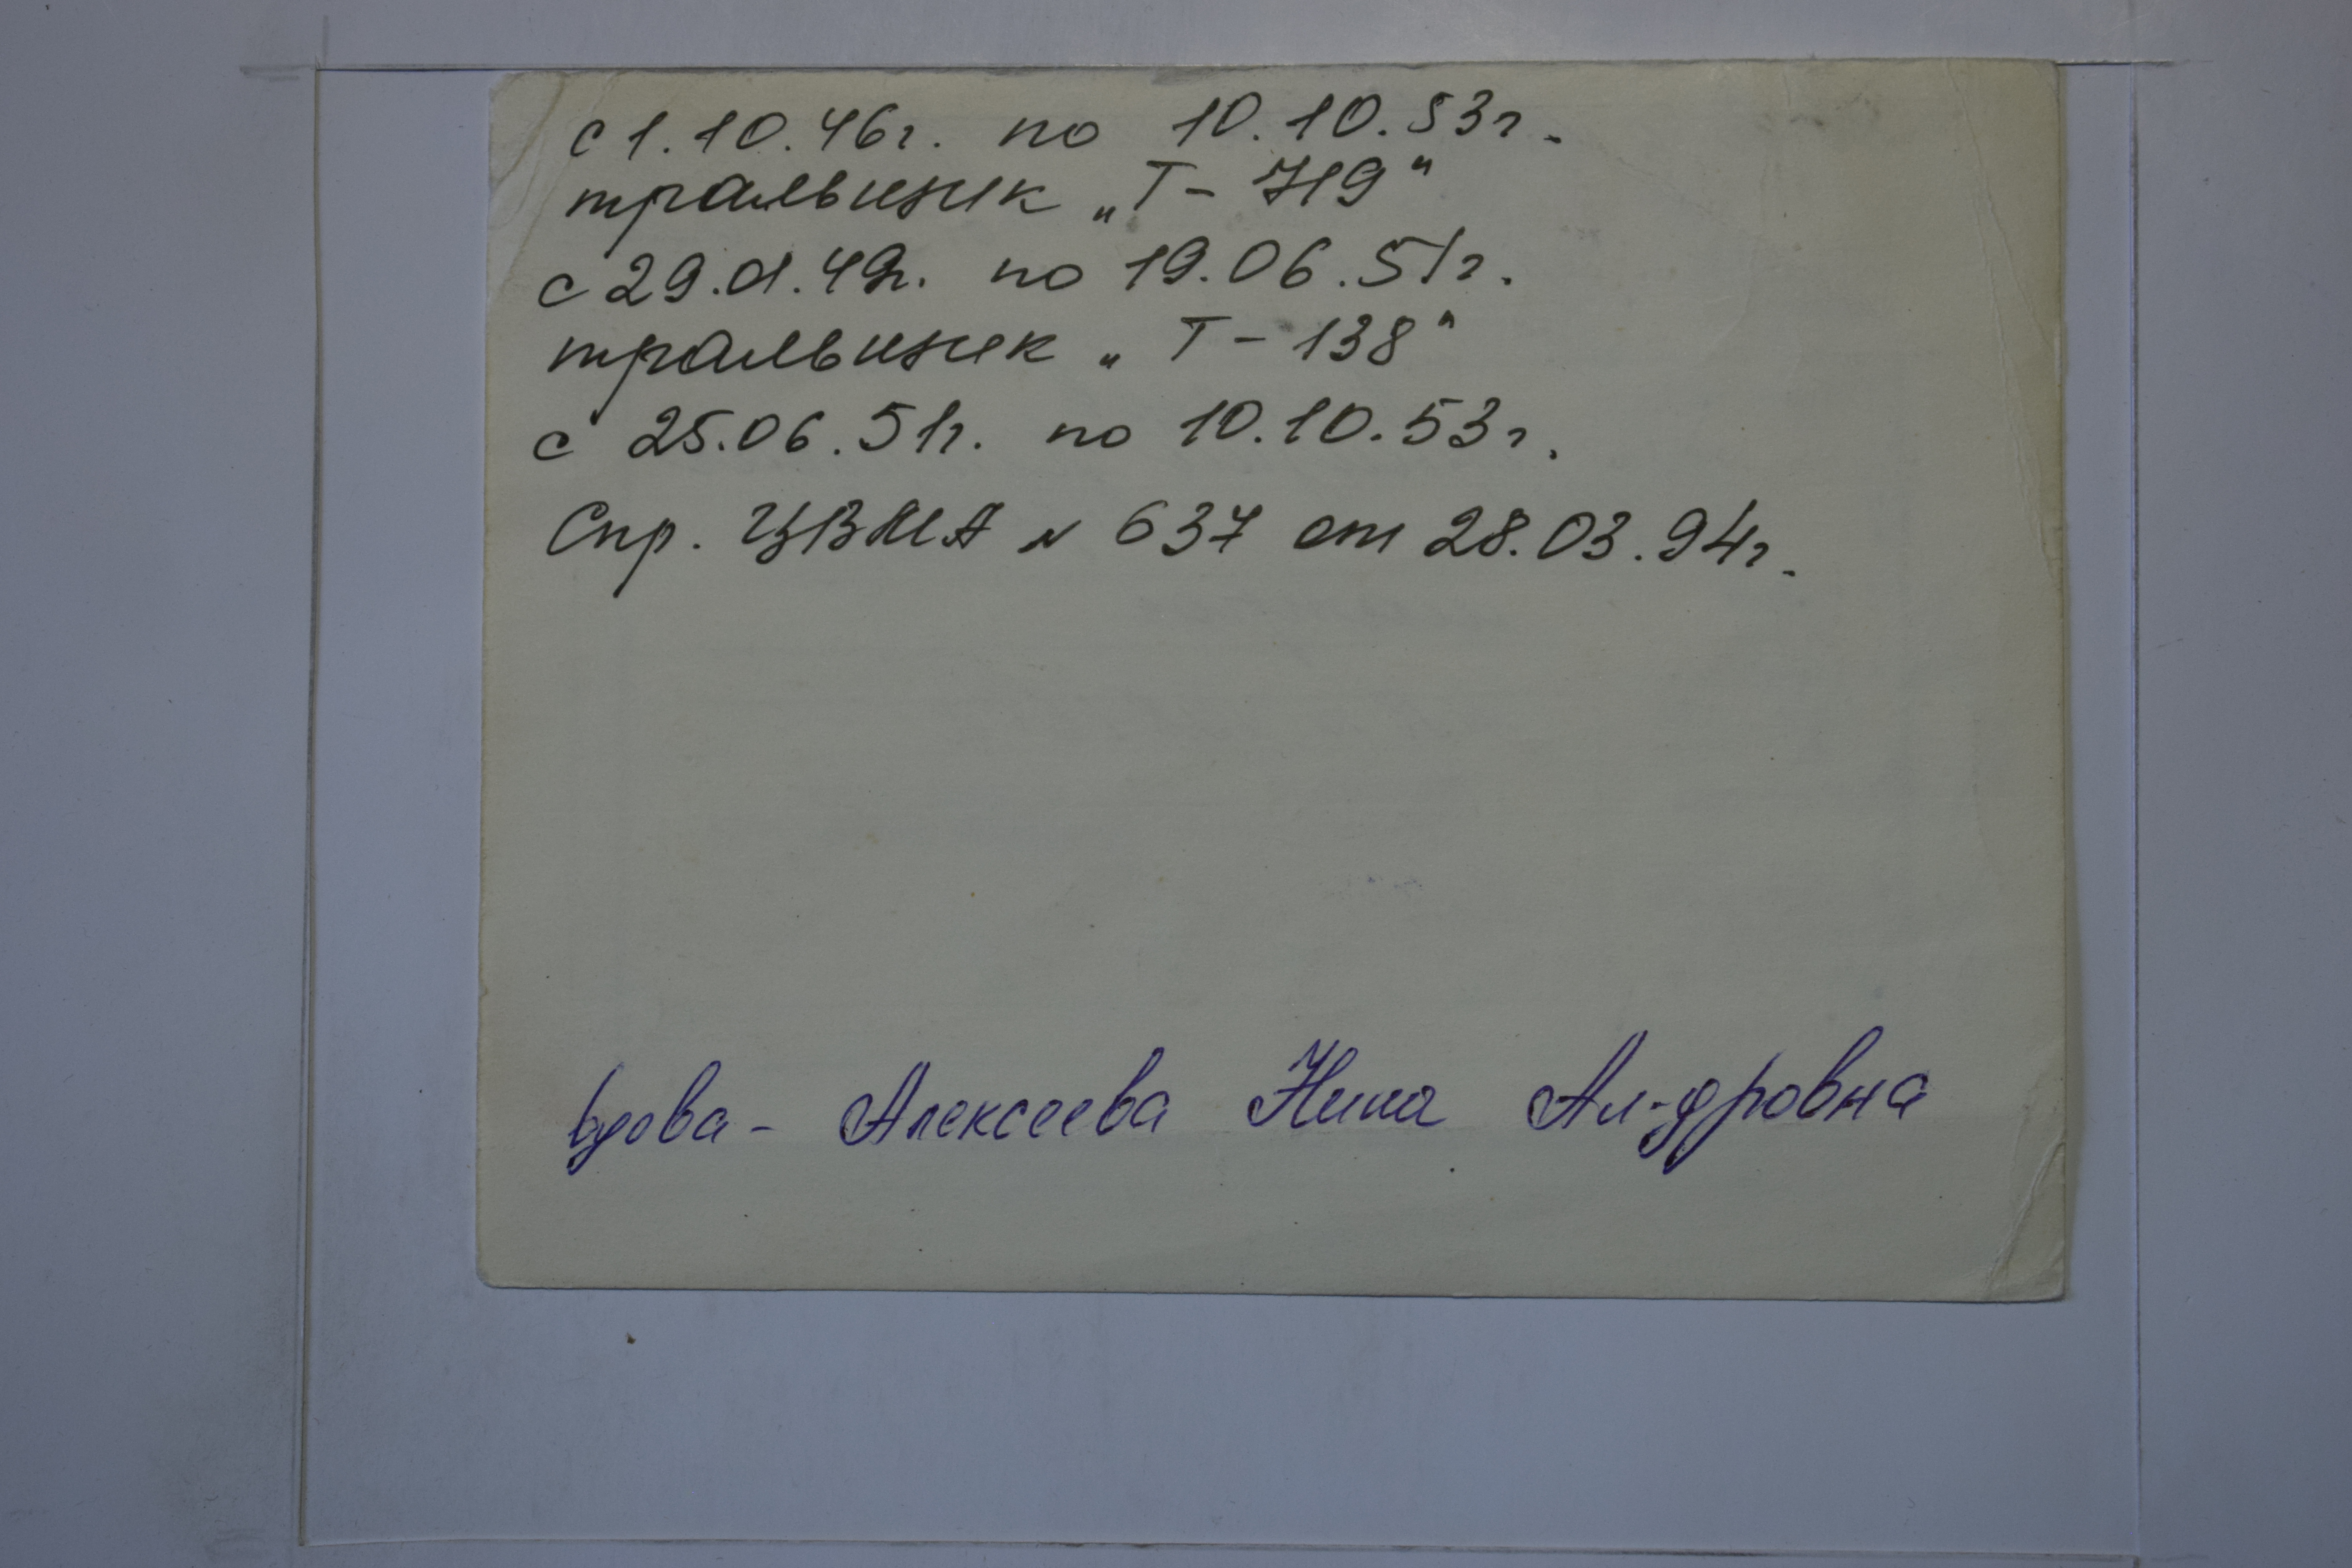 с 1.10.46г. по 10.10.53г.
тральщик „Т-719"
с 29.01.49г. по 19.06.51г.
тральщик „Т-138"
с 25.06.51г. по 10.10.53г.
Спр. ЦВМА № 637 от 28.03.94г.
вдова - Алексеева Нина Ал-дровна